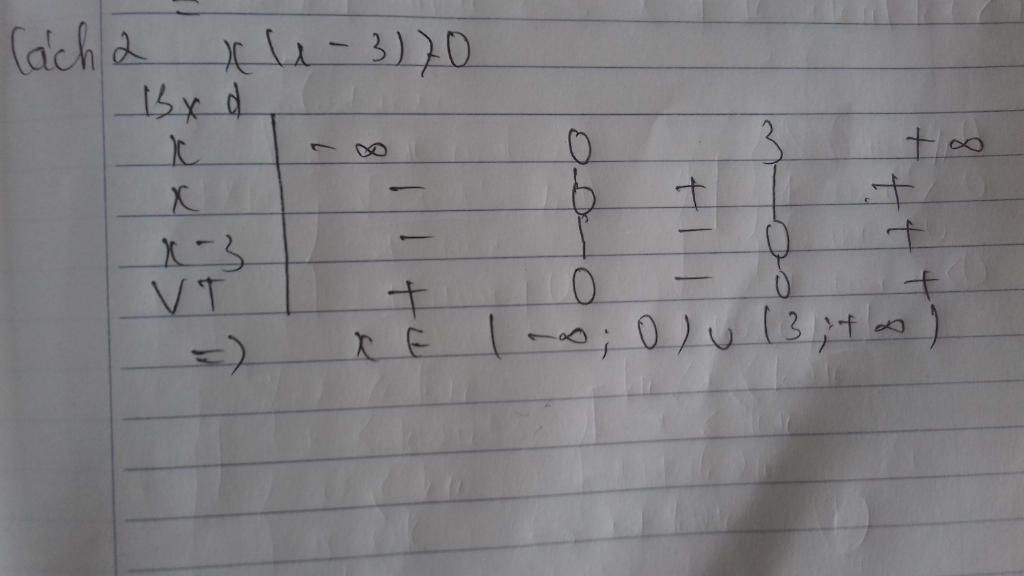 Cách 2 x(x-3)>0
Bxd
x -∞ 0 3 +∞
x - 0 + | +
x-3 - | - 0 +
VT + 0 - 0 +
=) x ∈ (-∞; 0) ∪ (3;+∞)